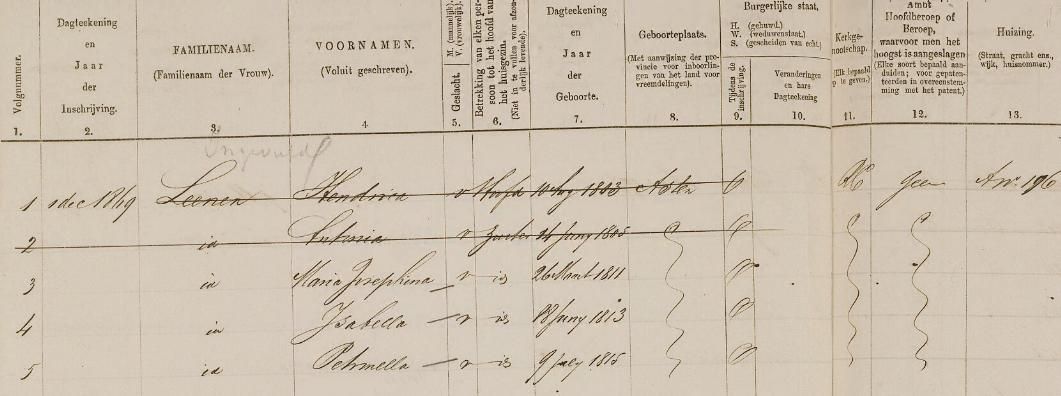 Volgnummer.
1.
Dagteekening
en
Jaar
der
Inschrijving.
2.
FAMILIENAAM.
(Familienaam der Vrouw).
3.
VOORNAMEN.
(Voluit geschreven).
4
Geslacht. M. (mannelijk). V. (vrouwelijk).
5.
Betrekking van elken per-
soon tot het hoofd van
het huisgezin.
(Niet in te vullen voor afzon-
derlijk levende).
6.
Dagteekening
en
Jaar
der
Geboorte.
7.
Geboorteplaats.
(Met aanwijzing der pro-
vincie voor inboorlin-
gen van het land voor
vreemdelingen).
8.
Burgerlijke staat,
H. (gehuwd.)
W. (weduwenstaat.)
S. (gescheiden van echt)
Tijdens de
inschrijving.
9.
Veranderingen
en hare
Dagteekening
10.
Kerkge-
nootschap.
te geven.)
11.
Ambt
Hoofdberoep of
Beroep,
waarvoor men het
hoogst is aangeslagen
(Elke soort bepaald aan-
duiden; voor gepaten-
teerden in overeenstem-
ming met het patent.)
12.
Huizing.
(Straat, gracht enz.,
wijk, huisnommer.)
13.
1 1 dec 1869 Leenen Hendrina v Hoofd 1803 Asten O RC Geen A no. 196
2 id Antonia v Zuster 24 Juny 1805 O
3 id Maria Josephina v id 26 Maart 1811 O
4 id Isabella v id 18 Juny 1813 O
5 id Petronella v id 9 July 1815 O